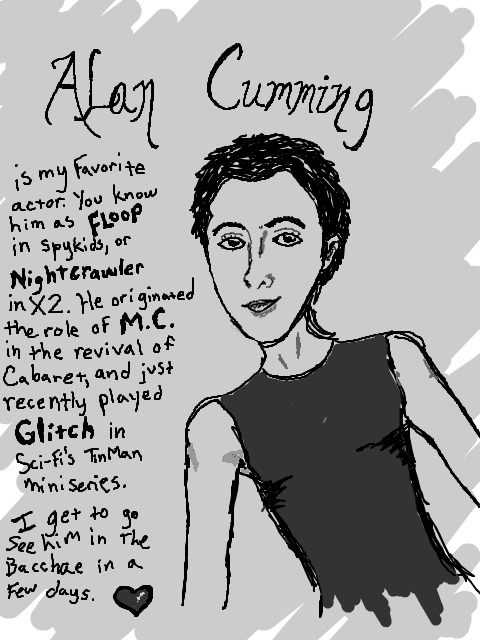 Alan Cumming
is my favorite
actor. You know
him as FLOOP
in Spykids, or
Nightcrawler
in X2. He originated
the role of M.C.
in the revival of
Cabaret, and just
recently played
Glitch in
Sci-Fi's TinMan
miniseries.
I get to go
See him in The
Bacchae in a
Few days.